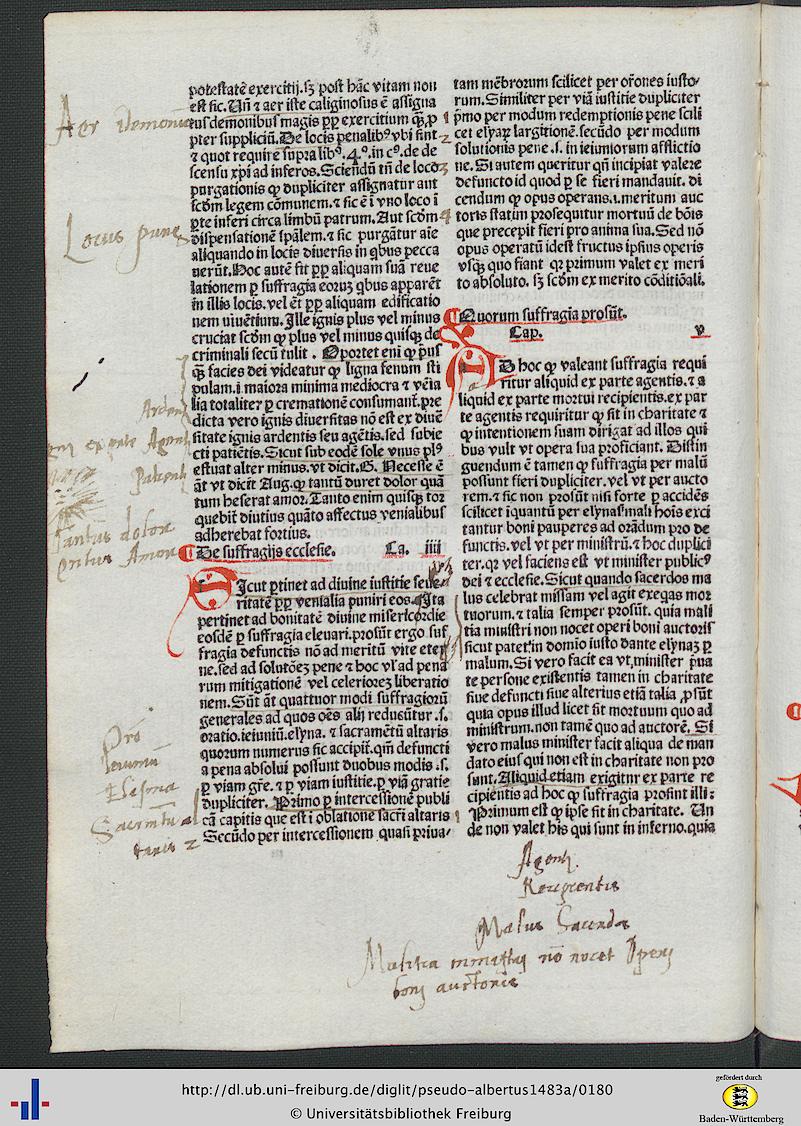 potestatē exercitij. sꝫ post hāc vitam non
est sic. Uñ ⁊ aer iste caliginosus ē assigna
tus demonibus magis ꝓp̄ exercitium q̄ꝫ ꝓ
pter suppliciū. De locis penalibꝰ vbi sint
⁊ quot require supra libº. 4.º. in cº. de de
scensu xp̄i ad inferos. Sciendū tn̄ de loco
purgationis ꝙ dupliciter assignatur aut
scd̄m legem cōmunem. ⁊ sic ē ī vno loco ī
ꝑte inferi circa limbū patrum. Aut scd̄m
dispensationē sp̄alem. ⁊ sic purgātur aīe
aliquando in locis diuersis in q̄bus pecca
uerūt. Hoc autē fit ꝓp̄ aliquam suā reue
lationem ꝑ suffragia eoruꝫ q̄bus apparēt
in illis locis. vel ēt ꝓp̄ aliquam edificatio
nem viuētium. Ille ignis plus vel minus
cruciat scd̄m ꝙ plus vel minus quisqꝫ de
criminali secū tulit. Oportet enī ꝙ p̄us
q̄ꝫ facies dei videatur ꝙ ligna fenum sti
pulam. i. maiora minima mediocra ⁊ vēia
lia totaliter ꝑ cremationē consumant̄. pre
dicta vero ignis diuersitas nō est ex diuē
sitate ignis ardentis seu agētis. sed subie
cti patiētis. Sicut sub eodē sole vnus plꝰ
estuat alter minus. vt dicit. G. Necesse ē
āt vt dicit Aug. ꝙ tantū duret dolor quā
tum heserat amor. Tanto enim quisqꝫ tor
quebit̄ diutius quāto affectus venialibus
adherebat fortius.
De suffragijs ecclesie. Ca. iiij
SIcut ꝑtinet ad diuine iustitie seue
ritatē ꝓp̄ venialia puniri eos. Ita
pertinet ad bonitatē diuine misericordie
eosdē ꝑ suffragia eleuari. prosūt ergo suf
fragia defunctis nō ad meritū vite eter
ne. sed ad solutōeꝫ pene ⁊ hoc vĺ ad pena
rum mitigationē vel celerioreꝫ liberatio
nem. Sūt āt quattuor modi suffragiorū
generales ad quos oēs alij reducūtur. s.
oratio. ieiuniū. elyna. ⁊ sacramētū altaris
quorum numerus sic accipit̄. qm̄ defuncti
a pena absolui possunt duobus modis. s.
ꝑ viam gr̄e. ⁊ ꝑ viam iustitie. ꝑ viā gratie
dupliciter. Primo ꝑ intercessionē publi
cā capitis que est ī oblatione sacrī altaris
Secūdo per intercessionem quasi priua-
tam mēbrorum scilicet per or̄ones iusto-
rum. Similiter per viā iustitie dupliciter
p̄mo per modum redemptionis pene scili
cet elyaꝝ largitionē. secūdo per modum
solutionis pene. s. in ieiuniorum afflictio
ne. Si autem queritur qn̄ incipiat valere
defuncto id quod ꝑ se fieri mandauit. di
cendum ꝙ opus operans. i. meritum auc
toris statim prosequitur mortuū de bōis
que precepit fieri pro anima sua. Sed nō
opus operatū idest fructus ipsius operis
vsqꝫ quo fiant qr primum valet ex meri
to absoluto. sꝫ scd̄m ex merito cōditiōali.
Quorum suffragia prosūt.
Cap. v
AD hoc ꝙ valeant suffragia requi
ritur aliquid ex parte agentis. ⁊ a
liquid ex parte mortui recipientis. ex par
te agentis requiritur ꝙ sit in charitate ⁊
ꝙ intentionem suam dirigat ad illos qui
bus vult vt opera sua proficiant. Distin
guendum ē tamen ꝙ suffragia per malū
possunt fieri dupliciter. vel vt per aucto
rem. ⁊ sic non prosūt nisi forte ꝑ accidēs
scilicet iquantū per elynas mali hoīs exci
tantur boni pauperes ad orādum pro de
functis. vel vt per ministrū. ⁊ hoc duplici
ter. qr vel faciens est vt minister publicꝰ
dei ⁊ ecclesie. Sicut quando sacerdos ma
lus celebrat missam vel agit exeq̄as mor
tuorum. ⁊ talia semper prosūt. quia mali
tia ministri non nocet operi boni auctoris
sicut patet in domio iusto dante elynaꝫ ꝑ
malum. Si vero facit ea vt minister p̄ua
te persone existentis tamen in charitate
siue defuncti siue alterius etiā talia ꝓsūt
quia opus illud licet sit mortuum quo ad
ministrum. non tamē quo ad auctorē. Si
vero malus minister facit aliqua de man
dato eius qui non est in charitate non pro
sunt. Aliquid etiam exigitur ex parte re
cipientis ad hoc ꝙ suffragia prosint illi:
Primum est ꝙ ipse sit in charitate. Un
de non valet his qui sunt in inferno. quia
Aer demonia
Locus
Ardens
ex parte Agentis
Patientis
Tantus dolor
Amor
Oro
Ieiunium
Elesina
Agentis
Recipientis
Malus Sacerdos
Malitia ministri nō nocet Operj
bonj auctoris
http://dl.ub.uni-freiburg.de/diglit/pseudo-albertus1483a/0180
© Universitätsbibliothek Freiburg
gefördert durch
Baden-Württemberg